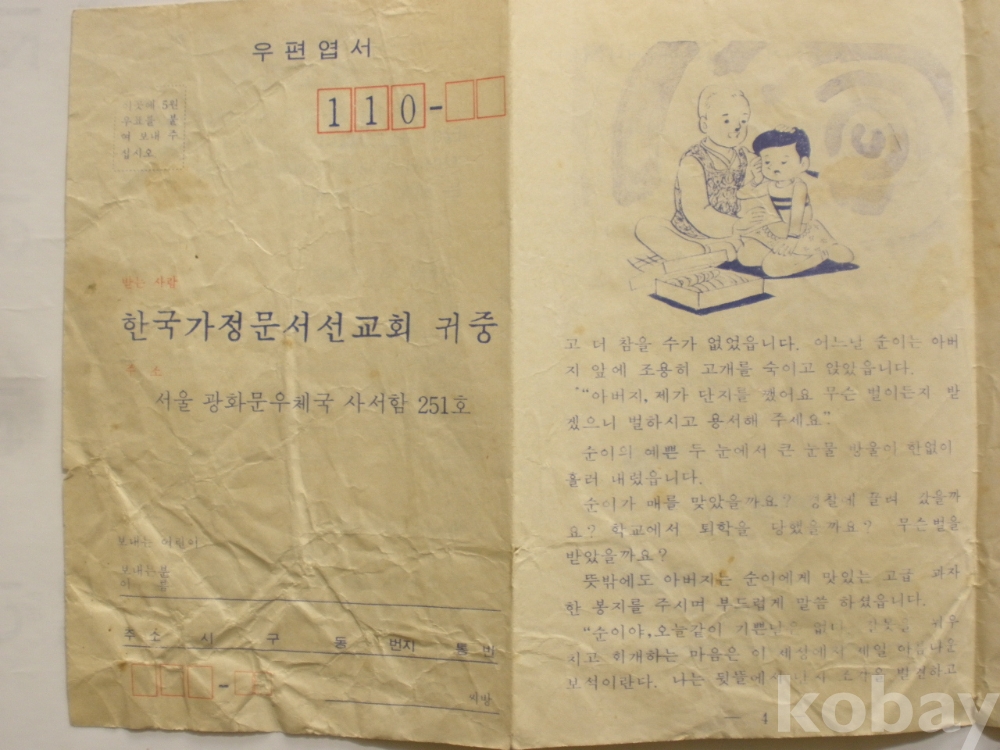 우편엽서
110-
이곳에 5원
우표를 붙
여 보내 주
십시오
받는 사람
한국가정문서선교회 귀중
주 소
서울 광화문우체국 사서함 251호
보내는 어린이
보내는분
이 름
주소 시 구 동 번지 통 반
고 더 참을 수가 없었읍니다. 어느날 순이는 아버
지 앞에 조용히 고개를 숙이고 앉았읍니다.
"아버지, 제가 단지를 했어요 무슨 벌이든지 받
겠으니 벌하시고 용서해 주세요"
순이의 예쁜 두 눈에서 큰 눈물 방울이 한없이
흘러 내렸읍니다.
순이가 매를 맞았을까요? 경찰에 끌려 갔을까
요? 학교에서 퇴학을 당했을까요? 무슨벌을
받았을까요?
뜻밖에도 아버지는 순이에게 맛있는 고급 과자
한 봉지를 주시며 부드럽게 말씀 하셨읍니다.
"순이야, 오늘같이 기쁜날은 없다 잘못을 뉘우
치고 회개하는 마음은 이 세상에서 제일 아름다운
보석이란다. 나는 뒷뜰에서 조각을 발견하고
— 4
kobay